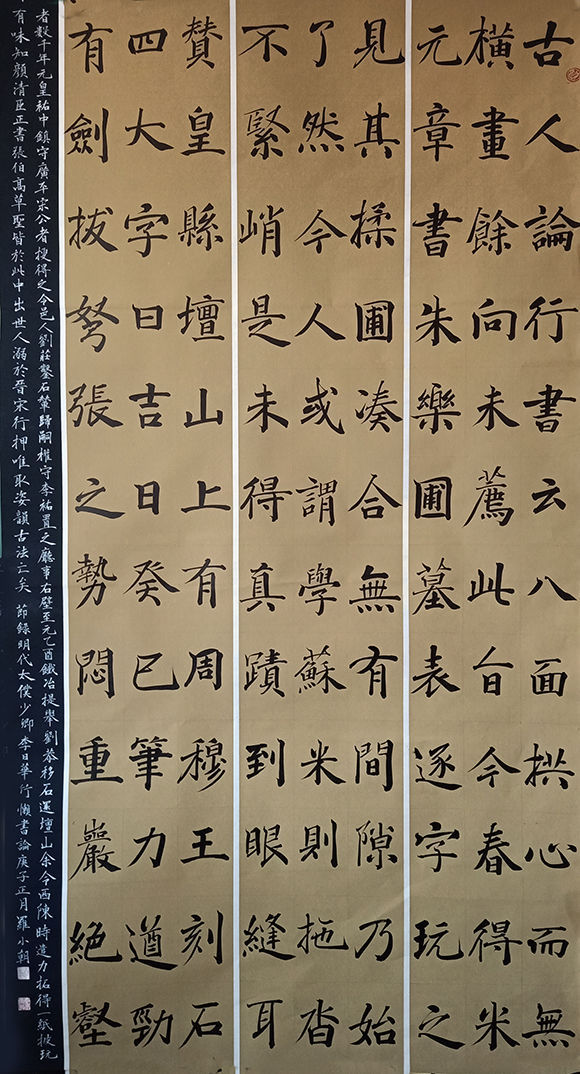 古人論行書云八面拱心而無
橫畫餘向未薦此旨今春得米
元章書朱樂圃墓表逐字玩之
見其揉圃湊合無有間隙乃始
了然今人或謂學蘇米則拖沓
不緊峭是未得真蹟到眼縫耳
贊皇縣壇山上有周穆王刻石
四大字曰吉日癸巳筆力遒勁
有劍拔弩張之勢悶重巖絕壑
者數千年元皇祐中鎮守廣平宋公者搜得之令邑人劉莊鑿石輦歸嗣權守李祐置之廳事右壁至元乙酉鐵冶提舉劉恭移石還壇山余令西陳時遣力拓得一紙披玩
有味知顏清臣正書張伯高草聖皆於此中出世人溺於晉宋行押唯取姿韻古法亡矣 節錄明代太僕少卿李日華竹懶書論庚子正月羅小朝